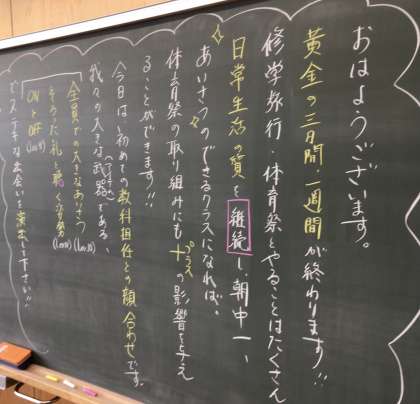 おはようございます。
黄金の三日間・一週間が終わります!!
修学旅行・体育祭とやることはたくさん
日常生活の質を継続し、朝中一、
あいさつのできるクラスになれば。
体育祭の取り組みにも＋プラスの影響を与え
ることができます!!
今日は初めての教科担任との顔合わせです。
我々の大きな武器である、
全員での大きなあいさつ
そろった礼・聴く姿勢
ONとOFF
でステキな出会いを演出して下さい!!